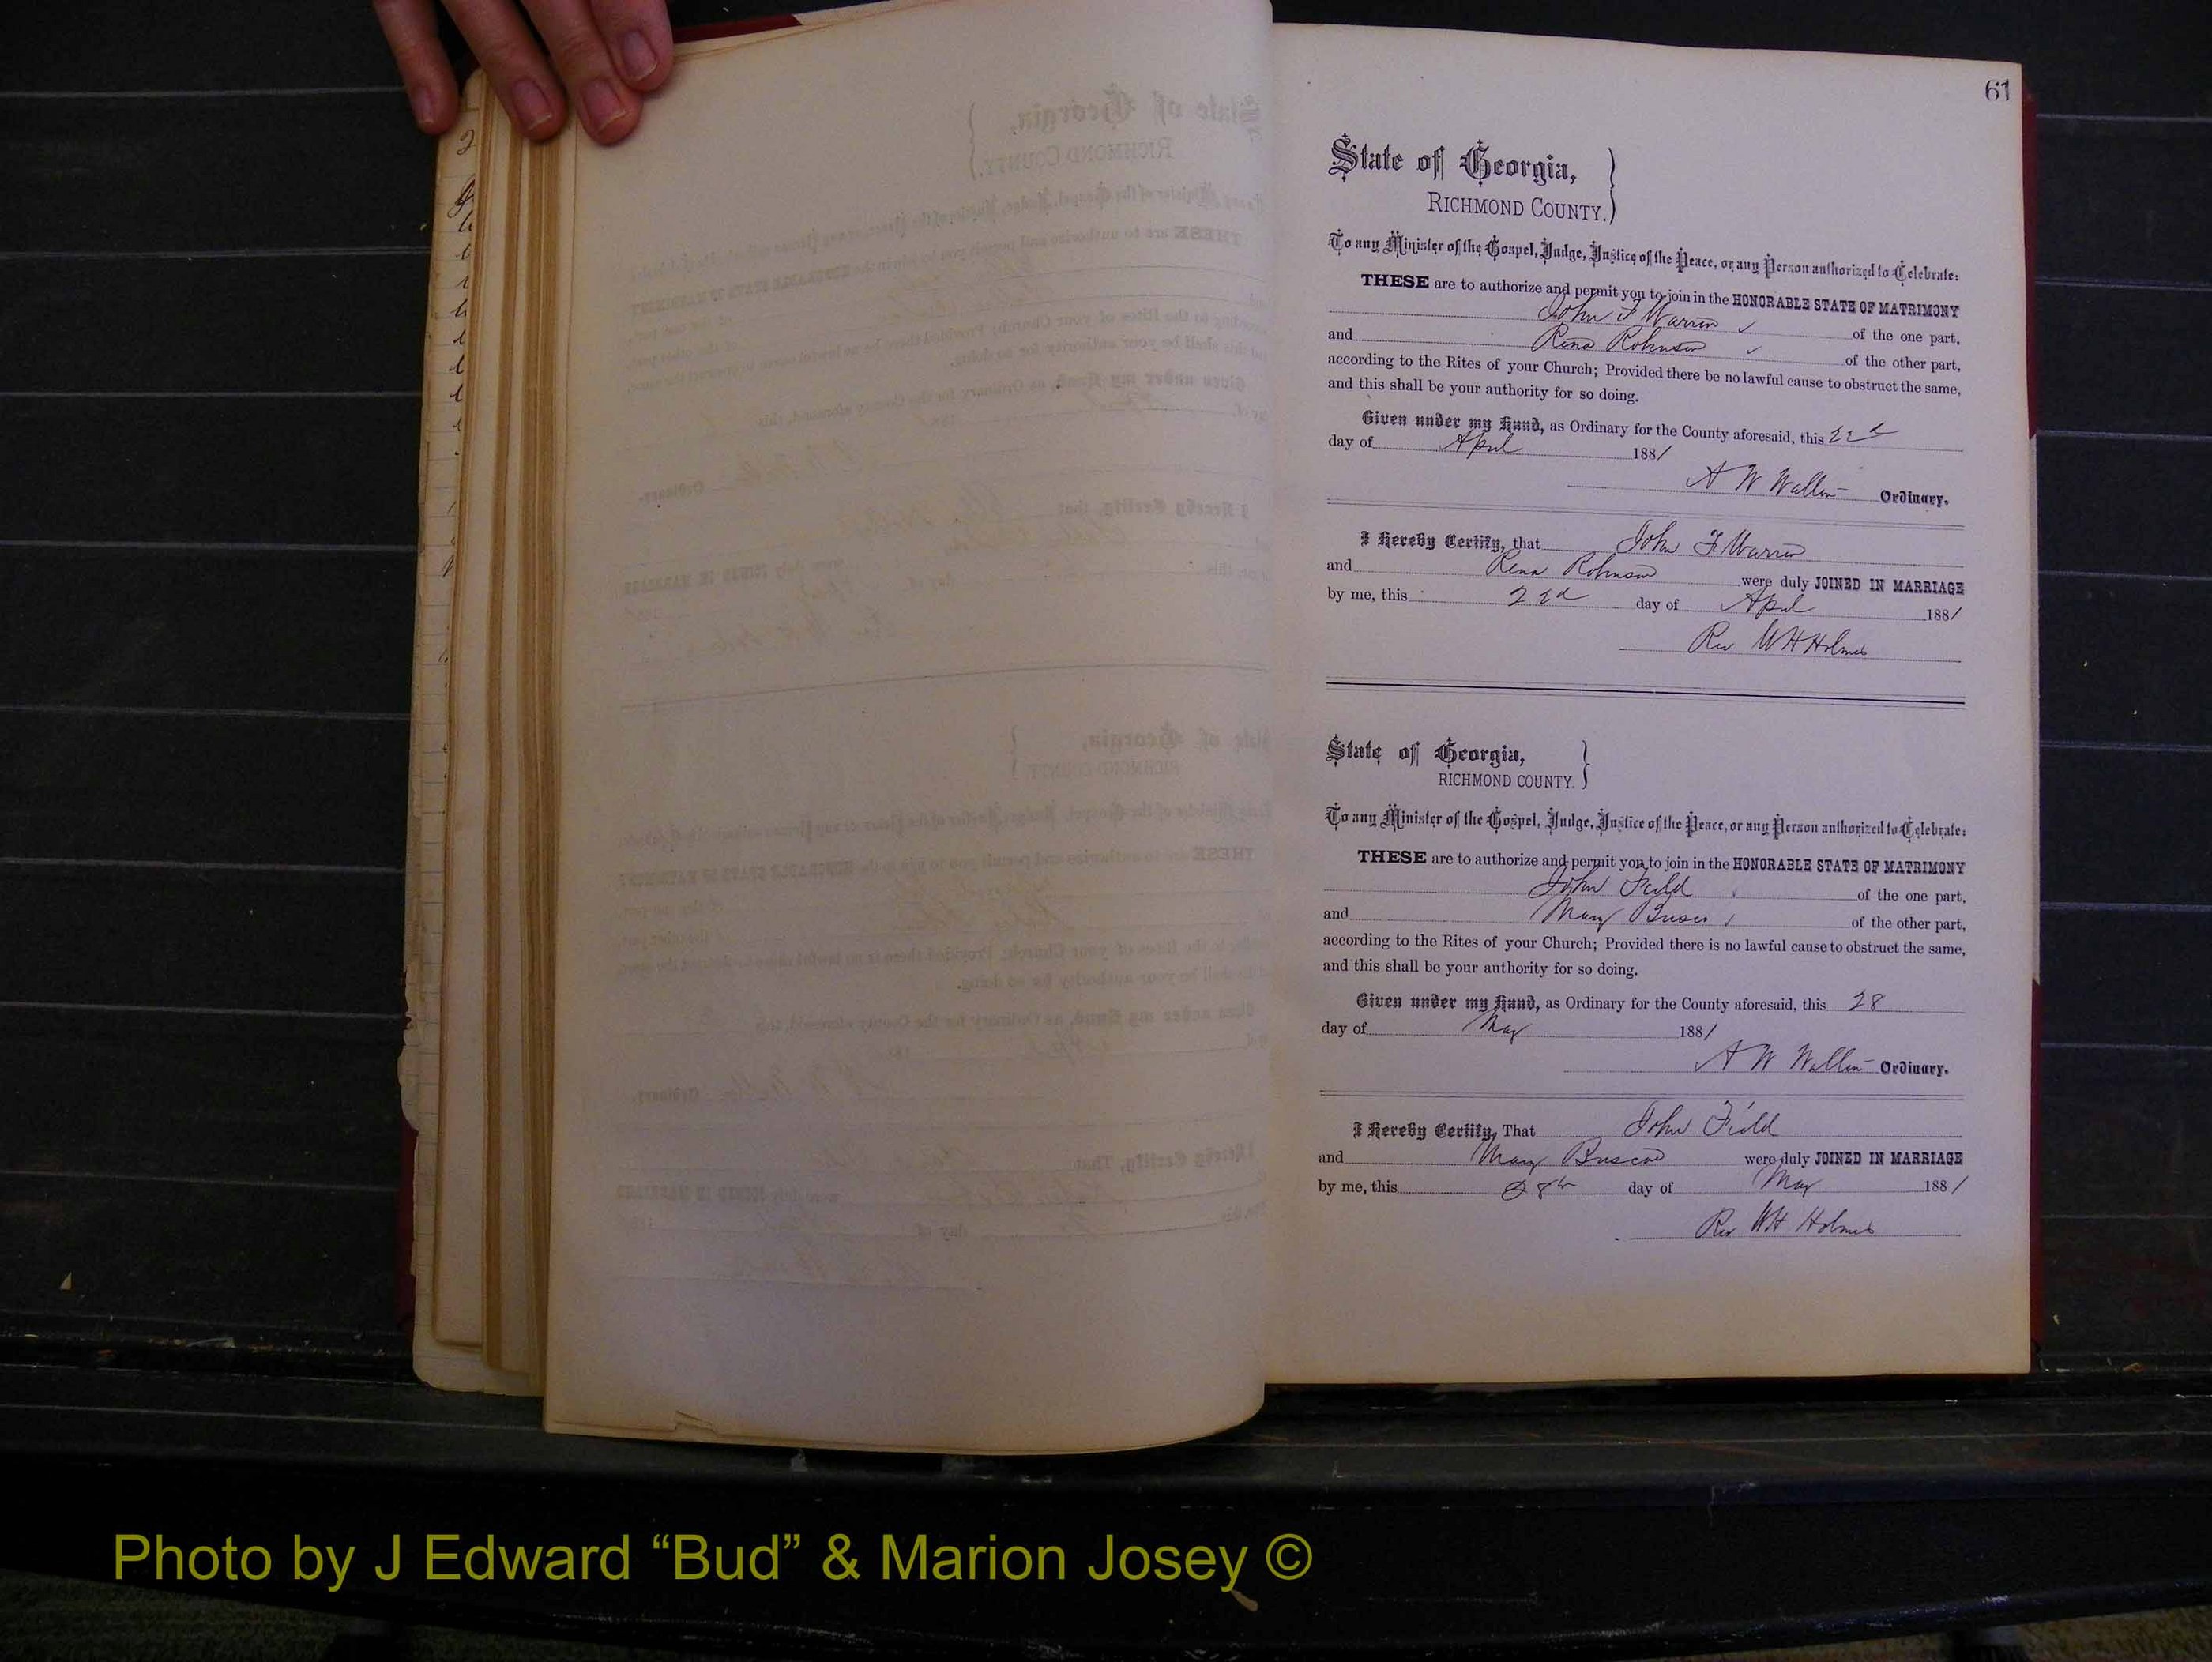 61
State of Georgia,
RICHMOND COUNTY.
To any Minister of the Gospel, Judge, Justice of the Peace, or any Person authorized to Celebrate:
THESE are to authorize and permit you to join in the HONORABLE STATE OF MATRIMONY
John F Warren of the one part,
and Rena Robinson of the other part,
according to the Rites of your Church; Provided there be no lawful cause to obstruct the same,
and this shall be your authority for so doing.
Given under my Hand, as Ordinary for the County aforesaid, this 22d
day of April 1881
A W Walton Ordinary.
I Hereby Certify, that John F Warren
and Rena Robinson were duly JOINED IN MARRIAGE
by me, this 22d day of April 1881
Rev W H Holmes
State of Georgia,
RICHMOND COUNTY.
To any Minister of the Gospel, Judge, Justice of the Peace, or any Person authorized to Celebrate:
THESE are to authorize and permit you to join in the HONORABLE STATE OF MATRIMONY
John Field of the one part,
and Mary of the other part,
according to the Rites of your Church; Provided there is no lawful cause to obstruct the same,
and this shall be your authority for so doing.
Given under my Hand, as Ordinary for the County aforesaid, this 28
day of May 1881
A W Walton Ordinary.
I Hereby Certify, That John Field
and Mary were duly JOINED IN MARRIAGE
by me, this 28th day of May 1881
Rev W H Holmes
Photo by J Edward “Bud” & Marion Josey ©